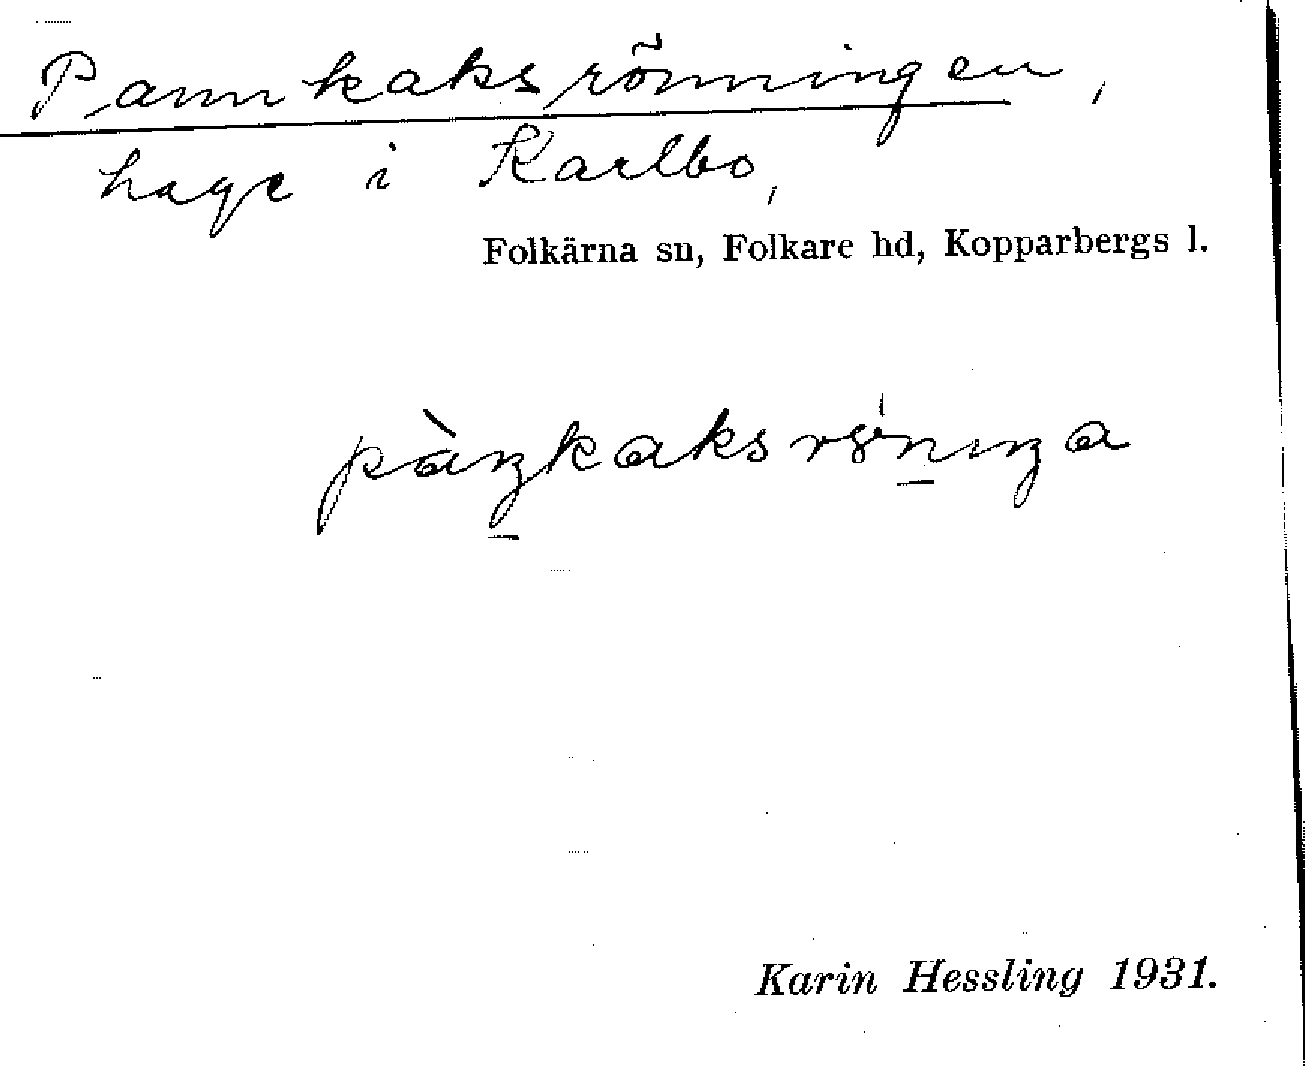 Pannkaksrönningen,
hage i Karlbo,
Folkärna sn, Folkare hd, Kopparbergs l.
pàŋkaksrönıŋa
Karin Hessling 1931.